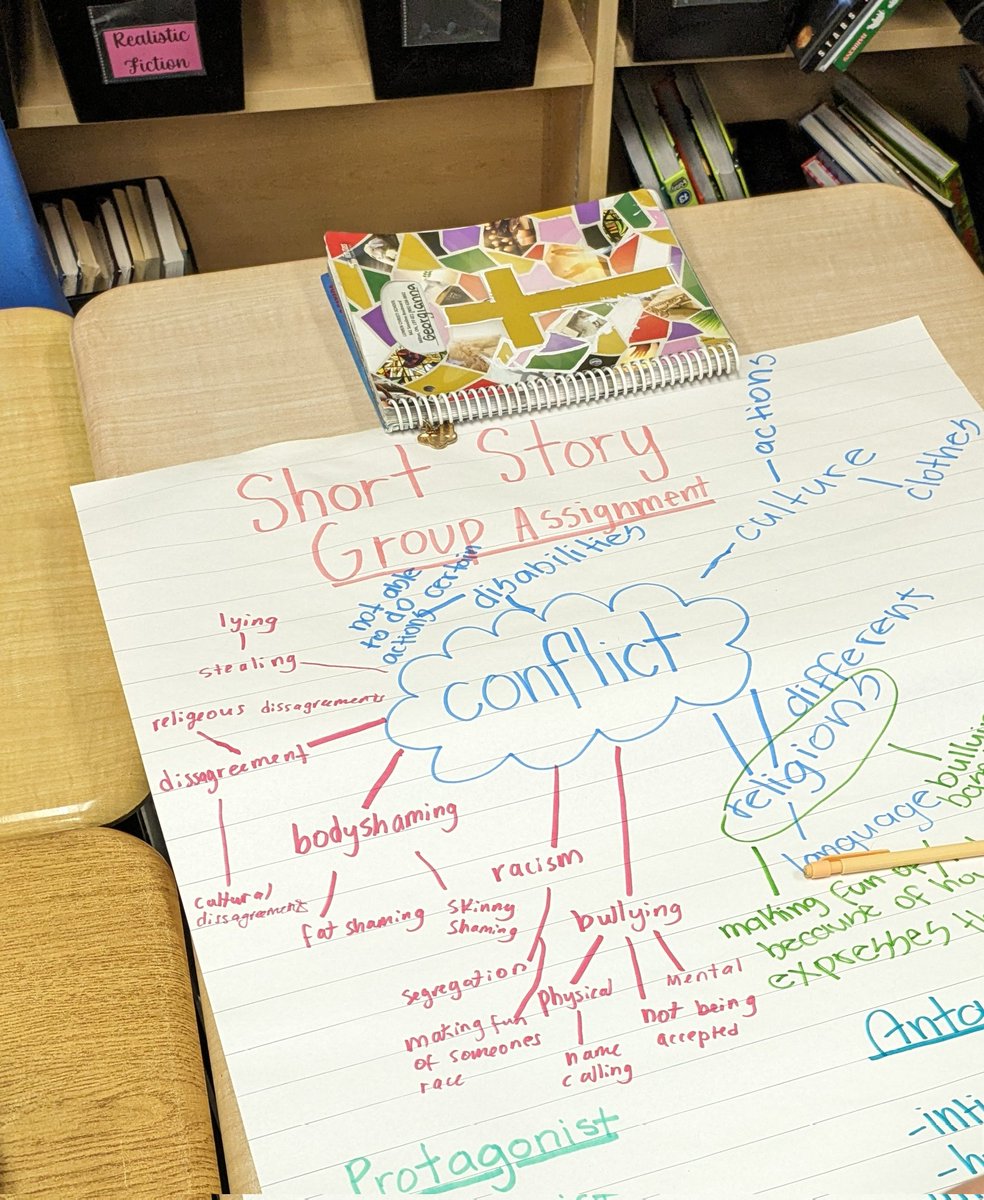 Realistic
Fiction
STARS
Georgianna
Short Story
Group Assignment
actions
culture
clothes
disabilities
not able
to do certain
actions
conflict
lying
stealing
religeous dissagreements
dissagreement
cultural
dissagreements
bodyshaming
fat shaming
skinny
shaming
racism
segregation
making fun
of someones
race
bullying
Physical
name
calling
Mental
not being
accepted
different
religions
language
making fun of
because of
expresses
Protagonist